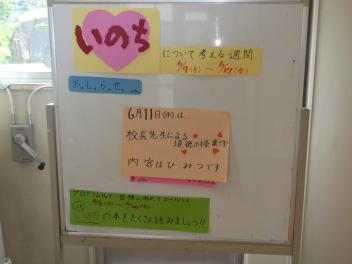 いのち
について考える週間
6/9(月)～6/27(金)
お。し。ら。せ。
6月11日(水)は…
校長先生による
道徳の授業です!
内容はひ・み・つです
の本をたくさん読みましょう!!